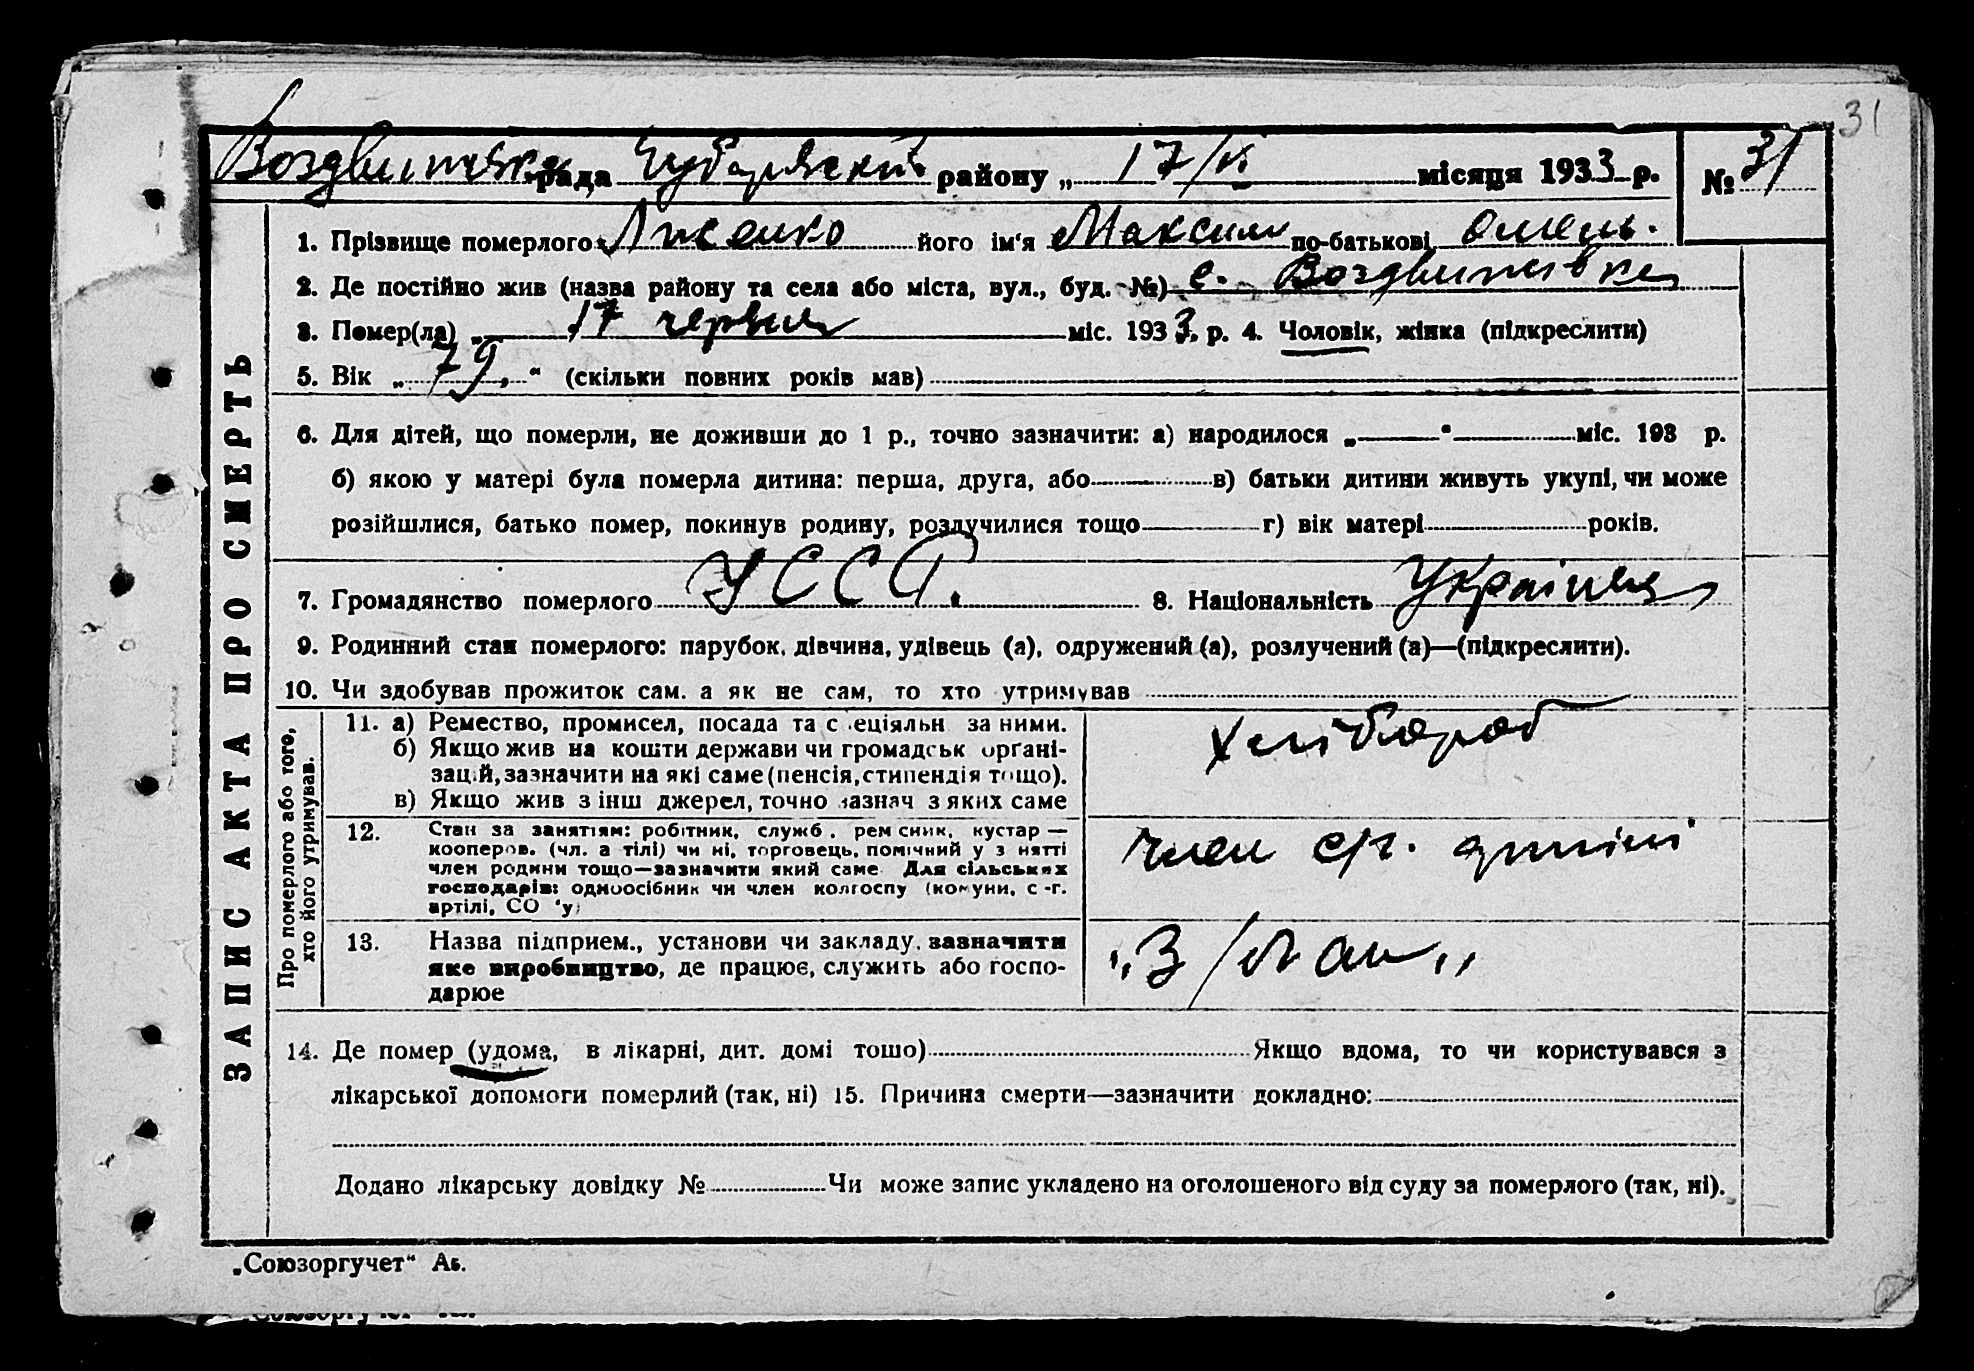 31
Воздвиженська рада Чубарівський району „ 17/VI місяця 1933 р. № 31
ЗАПИС АКТА ПРО СМЕРТЬ
1. Прізвище померлого Лисенко його ім‘я Максим по-батькові Омель.
2. Де постійно жив (назва району та села або міста, вул., буд. №) с. Воздвижівка
3. Помер(ла) „ 17 червня міс. 1933, р. 4. Чоловік, жінка (підкреслити)
5. Вік „ 79. “ (скільки повних років мав)
6. Для дітей, що померли, не доживши до 1 р., точно зазначити: а) народилося „ “ міс. 193 р.
б) якою у матері була померла дитина: перша, друга, або в) батьки дитини живуть укупі, чи може
розійшлися, батько помер, покинув родину, розлучилися тощо г) вік матері років.
7. Громадянство померлого УССР. 8. Національність Українец
9. Родинний стан померлого: парубок, дівчина, удівець (а), одружений (а), розлучений (а)—(підкреслити).
10. Чи здобував прожиток сам. а як не сам, то хто утримував
Про померлого або того,
хто його утримував.
11. а) Ремество, промисел, посада та с еціяльн за ними.
б) Якщо жив на кошти держави чи громадськ органі-
зац.й, зазначити на які саме (пенсія, стипендія тощо).
в) Якщо жив з інш джерел, точно зазнач з яких саме
Хлібороб
12. Стан за заняттям: робітник, служб., рем сник, кустар —
кооперов. (чл. а тілі) чи ні, торговець, помічний у з нятті
член родини тощо—зазначити який саме Для сільських
господарів: одноосібник чи член колгоспу (комуни, с-г.
артілі, СО 'у)
член с/г. артілі
13. Назва підприєм., установи чи закладу, зазначити
яке виробництво, де працює, служить або госпо-
дарює
14. Де помер (удома, в лікарні, дит. домі тошо) Якщо вдома, то чи користувався з
лікарської допомоги померлий (так, ні) 15. Причина смерти—зазначити докладно:
Додано лікарську довідку № Чи може запис укладено на оголошеного від суду за померлого (так, ні).
„Союзоргучет“ Аб.